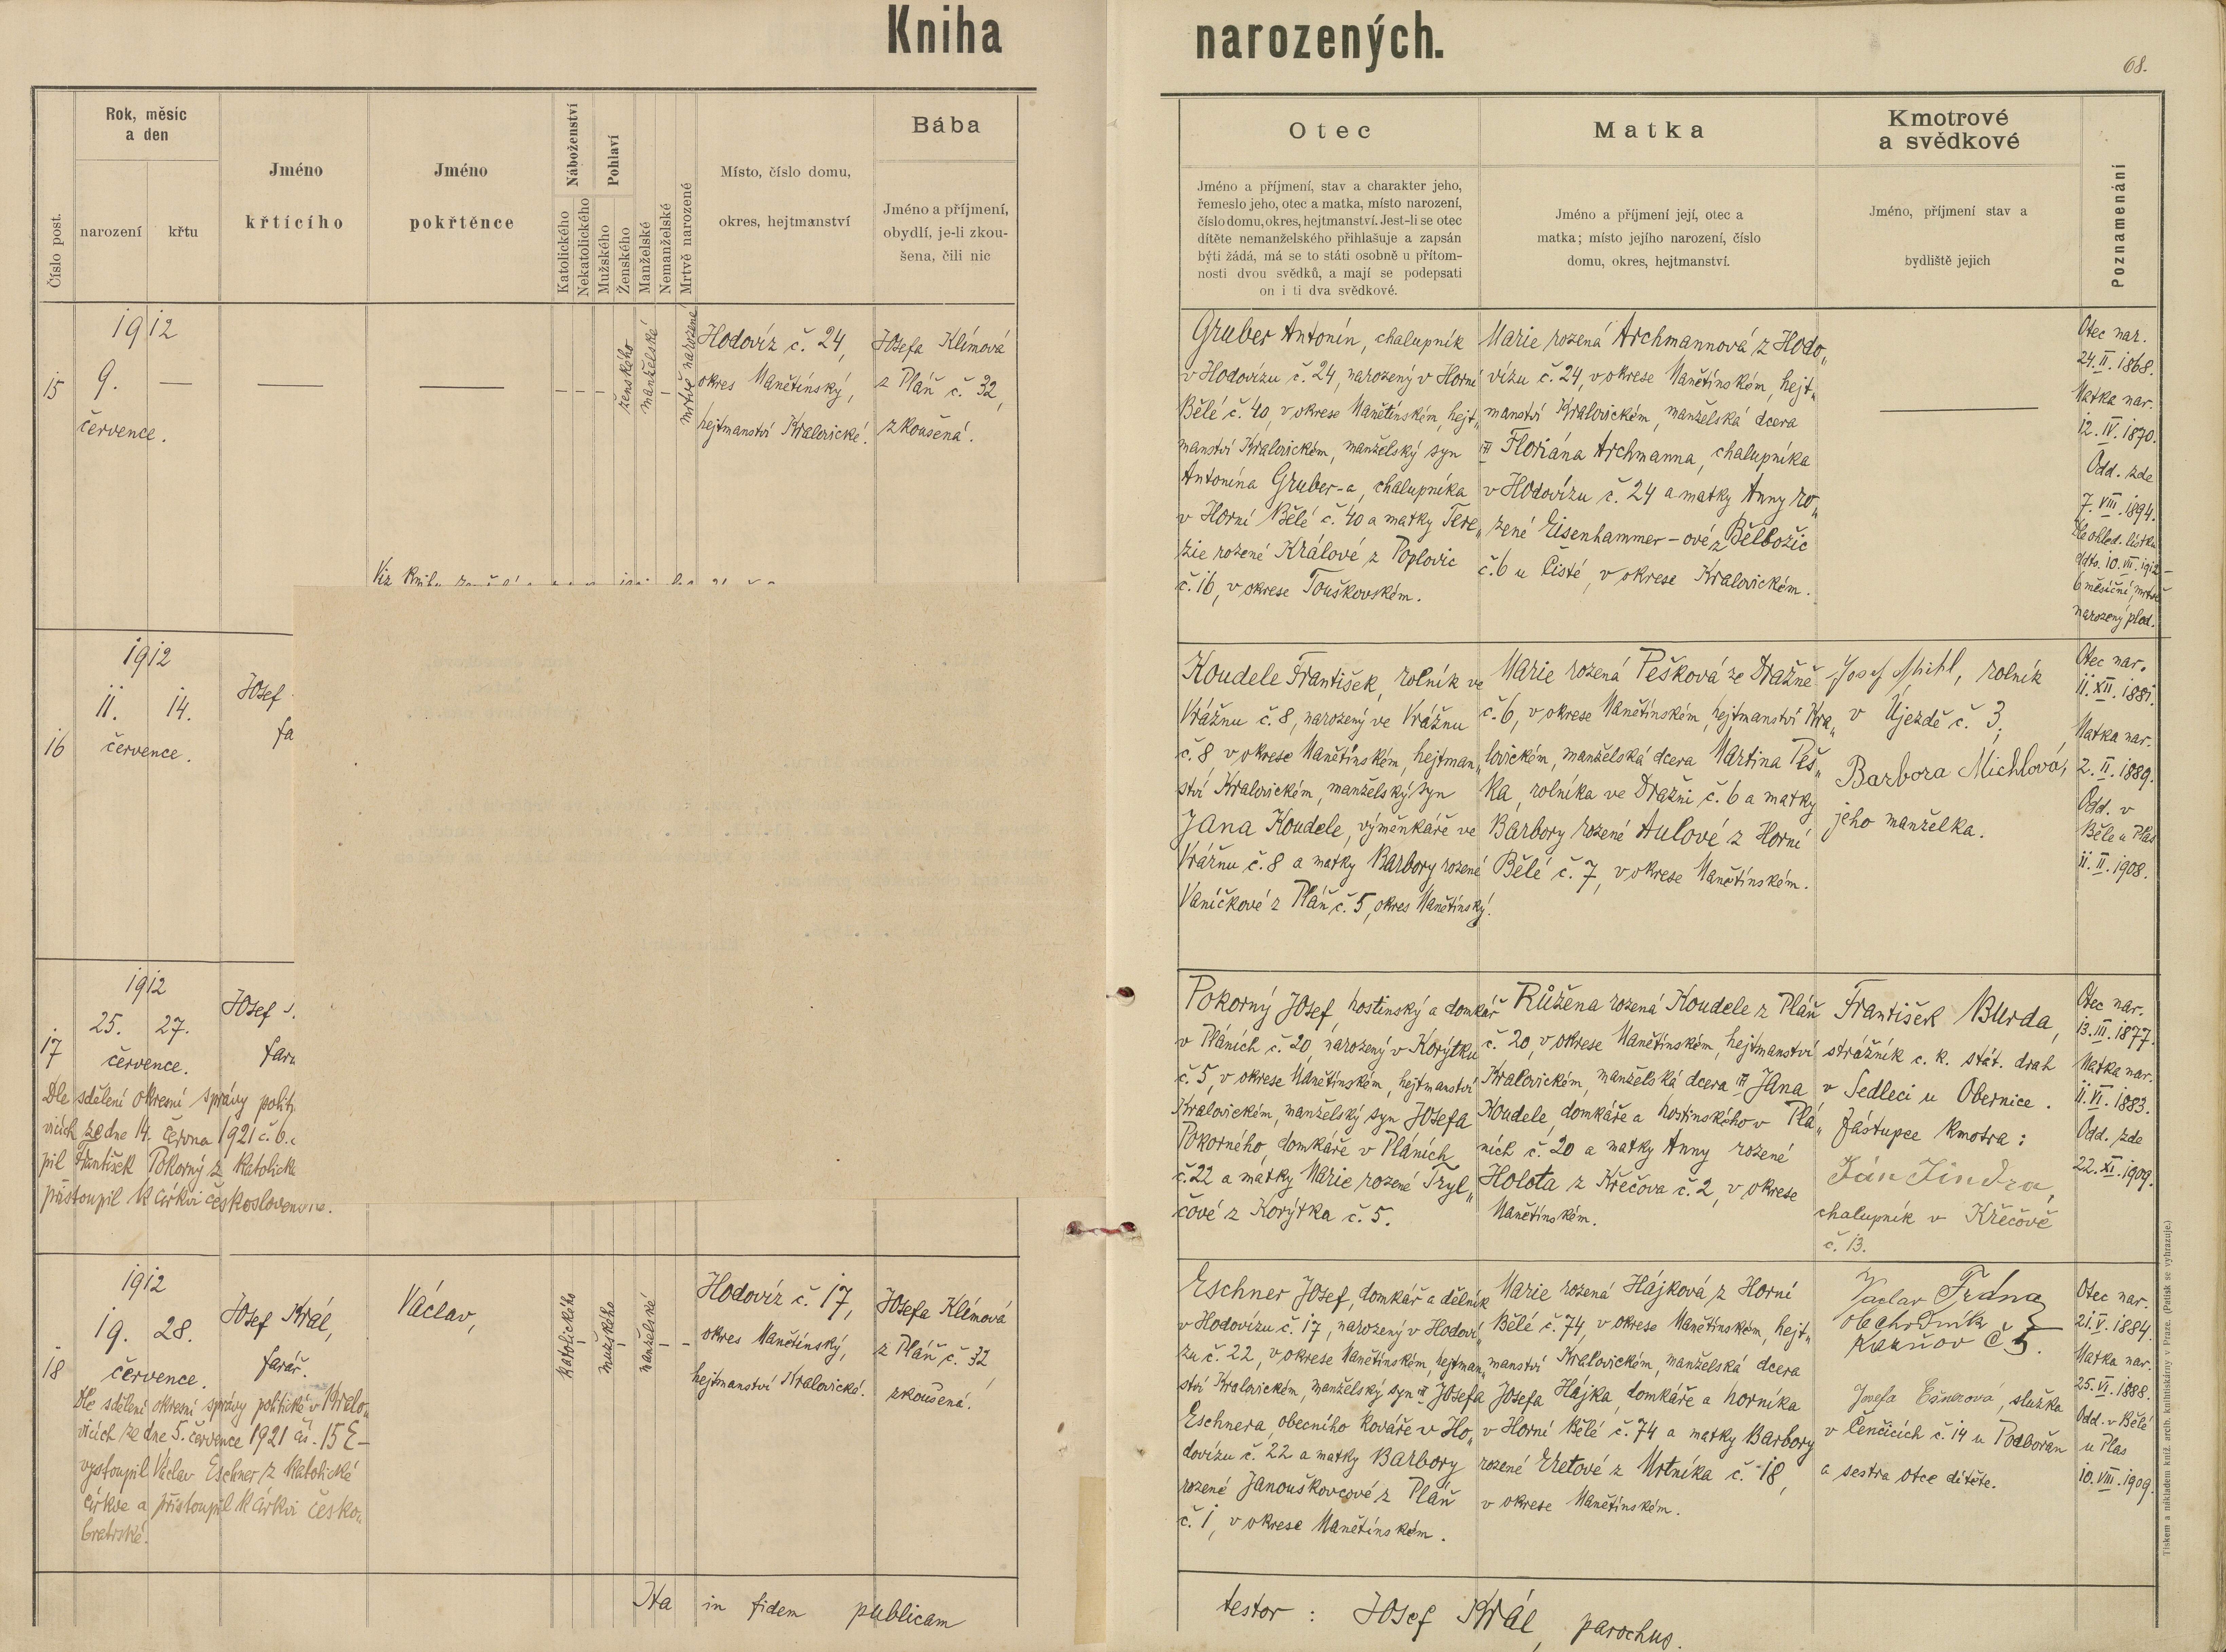 Kniha
narozených.
68.
Číslo post.
Rok, měsíc
a den
narození
křtu
Jméno
křtícího
Jméno
pokřtěnce
Náboženství
Katolického
Nekatolického
Pohlaví
Mužského
Ženského
Manželské
Nemanželské
Mrtvě narozené
Místo, číslo domu,
okres, hejtmanství
Bába
Jméno a příjmení,
obydlí, je-li zkou-
šena, čili nic
Otec
Jméno a příjmení, stav a charakter jeho,
řemeslo jeho, otec a matka, místo narození,
číslo domu, okres, hejtmanství. Jest-li se otec
dítěte nemanželského přihlašuje a zapsán
býti žádá, má se to státi osobně u přítom-
nosti dvou svědků, a mají se podepsati
on i ti dva svědkové.
Matka
Jméno a příjmení její, otec a
matka; místo jejího narození, číslo
domu, okres, hejtmanství.
Kmotrové
a svědkové
Jméno, příjmení stav a
bydliště jejich
Poznamenání
15
1912
9. —
července.
—
—
ženského
manželské
mrtvě narozené
Hodovíz č. 24,
okres Manětínský,
hejtmanství Kralovické.
Josefa Klímová
z Pláň č. 32,
zkoušená.
Gruber Antonín, chalupník
v Hodovízu č. 24, narozený v Horní
Bělé č. 40, v okrese Manětínském, hejt„
manství Kralovickém, manželský syn
Antonína Gruber-a, chalupníka
v Horní Bělé č. 40 a matky Tere„
zie rozené Králové z Poplovic
č. 16, v okrese Touškovském.
Marie rozená Archmannová z Hodo„
vízu č. 24, v okrese Manětínském, hejt„
manství Kralovickém, manželská dcera
Floriána Archmanna, chalupníka
v Hodovízu č. 24 a matky Anny ro„
zené Eisenhammer-ové z Bělbožic
č. 6 u Čisté, v okrese Kralovickém.
Otec nar.
24. II. 1868.
Matka nar.
12. IV. 1870.
Odd. zde
7. VIII. 1894.
Dle ohled. lístku
ddto. 10. VII. 1912 –
6 měsíční, mrtvě
narozený plod.
Viz knihu
16
1912
11. 14.
července.
Josef
fa
Koudele František, rolník ve
Vrážnu č. 8, narozený ve Vrážnu
č. 8, v okrese Manětínském, hejtman„
ství Kralovickém, manželský syn
Jana Koudele, výměnkáře ve
Vrážnu č. 8 a matky Barbory rozené
Vaníčkové z Pláň č. 5, okres Manětínský.
Marie rozená Pešková ze Dražně
č. 6, v okrese Manětínském, hejtmanství Kra„
lovickém, manželská dcera Martina Peš„
ka, rolníka ve Dražni č. 6 a matky
Barbory rozené Aulové z Horní
Bělé č. 7, v okrese Manětínském.
Josef Michl, rolník
v Újezdě č. 3,
Barbora Michlová,
jeho manželka.
Otec nar.
11. XII. 1881.
Matka nar.
2. II. 1889.
Odd. v
Běle u Plas
11. II. 1908.
17
1912
25. 27.
července.
Josef
fará
Dle sdělení okresní správy polit
vicích ze dne 14. června 1921 č. 6.
pil František Pokorný z katolické
přistoupil k církvi československé.
Pokorný Josef, hostinský a domkář
v Pláních č. 20, narozený v Korýtku
č. 5, v okrese Manětínském, hejtmanství
Kralovickém, manželský syn Josefa
Pokorného, domkáře v Pláních
č. 22 a matky Marie rozené Tryl„
čové z Korýtka č. 5.
Růžena rozená Koudele z Pláň
č. 20, v okrese Manětínském, hejtmanství
Kralovickém, manželská dcera Jana
Koudele, domkáře a hostinského v Plá„
ních č. 20 a matky Anny rozené
Holota z Křečova č. 2, v okrese
Manětínském.
František Burda,
strážník c. k. stát. drah
v Sedleci u Obernice.
Zástupce kmotra:
Ján Jindra,
chalupník v Křečově
č. 13.
Otec nar.
13. III. 1877.
Matka nar.
11. VI. 1883.
Odd. zde
22. XI. 1909.
18
1912
19. 28.
července.
Josef Král,
farář.
Václav,
katolického
mužského
manželské
Hodovíz č. 17,
okres Manětínský,
hejtmanství Kralovické.
Josefa Klímová
z Pláň č. 32,
zkoušená.
Dle sdělení okresní správy politické v Kralo„
vicích ze dne 5. července 1921 čís. 15 E–
vystoupil Václav Eschner z katolické
církve a přistoupil k církvi česko„
bratrské.
Eschner Josef, domkář a dělník
v Hodovízu č. 17, narozený v Hodoví„
zu č. 22, v okrese Manětínském, hejtman„
ství Kralovickém, manželský syn Josefa
Eschnera, obecního kováře v Ho„
dovízu č. 22 a matky Barbory
rozené Janouškovcové z Pláň
č. 1, v okrese Manětínském.
Marie rozená Hájková z Horní
Bělé č. 74, v okrese Manětínském, hejt„
manství Kralovickém, manželská dcera
Josefa Hájka, domkáře a horníka
v Horní Bělé č. 74 a matky Barbory
rozené Eretové z Mrtníka č. 18,
v okrese Manětínském.
Vaclav Frána
obchodník
Kazňov č 5.
Josefa Ešnerová, služka
v Čenčicích č. 14 u Podbořan
a sestra otce dítěte.
Otec nar.
21. V. 1884.
Matka nar.
25. VI. 1888.
Odd. v Bělé
u Plas
10. VIII. 1909.
Ita in fidem publicam
testor: Josef Král, parochus.
Tiskem a nákladem kníž. arcib. knihtiskárny v Praze. (Patisk se vyhrazuje.)